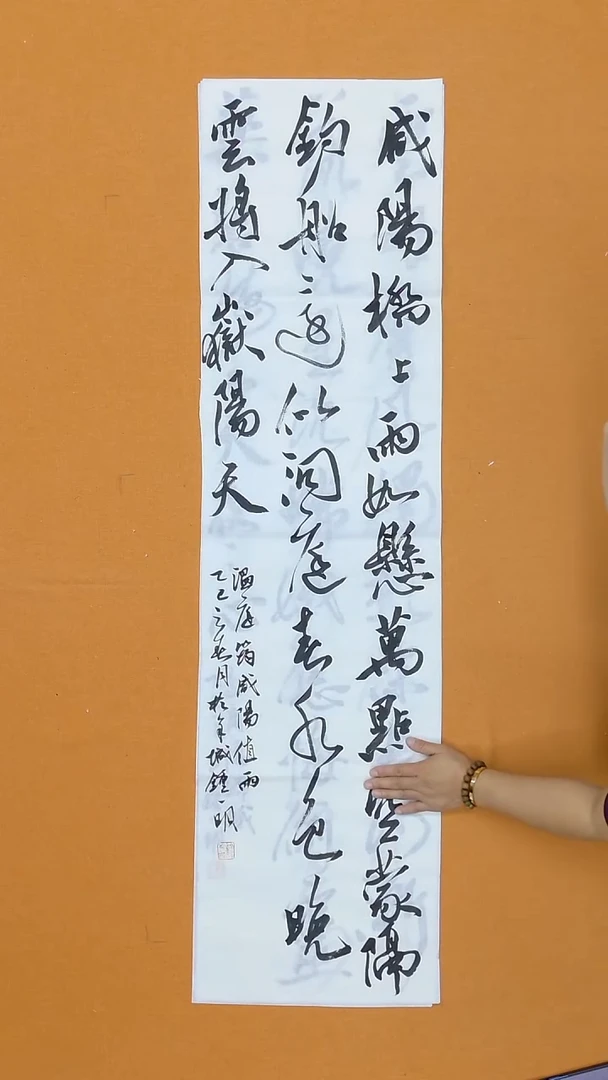 咸陽橋上雨如懸萬點空蒙隔
釣船還似洞庭春水色晚
雲將入嶽陽天
溫庭筠咸陽值雨
乙巳之春月於城鍾一明